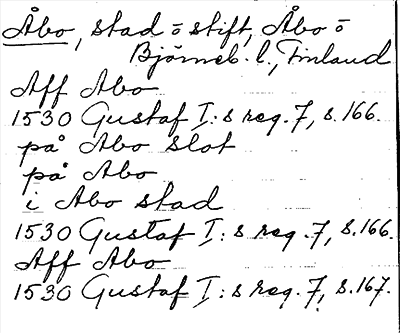 Åbo, stad o stift, Åbo o
Björneb. l., Finland
Aff Abo
1530 Gustaf I: s reg. 7, s. 166.
på Abo slot
på Abo
i Abo stad
1530 Gustaf I: s reg. 7, s. 166.
Aff Abo
1530 Gustaf I: s reg. 7, s. 167.